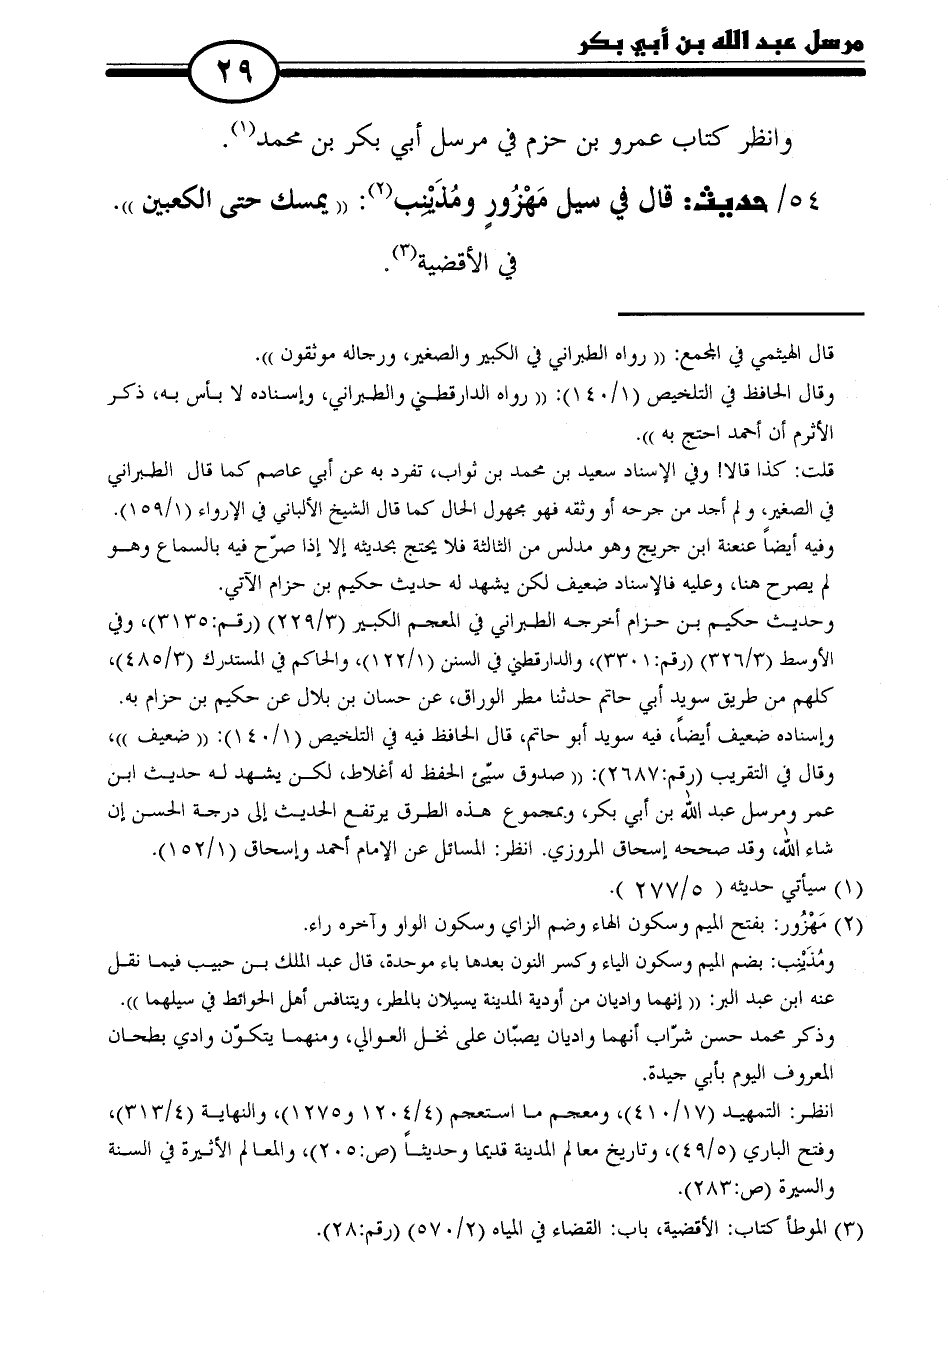 مرسل عبد الله بن أبي بكر
٢٩
وانظر كتاب عمرو بن حزم في مرسل أبي بكر بن محمد(١).
٥٤/ حديث: قال في سيل مَهْزُورٍ ومُذَيْنِب(٢): (( يمسك حتى الكعبين )).
في الأقضية(٣).
قال الهيثمي في المجمع: (( رواه الطبراني في الكبير والصغير، ورجاله موثقون )).
وقال الحافظ في التلخيص (١/١٤٠): (( رواه الدارقطني والطبراني، وإسناده لا بأس به، ذكر
الأثرم أن أحمد احتج به )).
قلت: كذا قالا! وفي الإسناد سعيد بن محمد بن ثواب، تفرد به عن أبي عاصم كما قال الطبراني
في الصغير، ولم أجد من جرحه أو وثقه فهو مجهول الحال كما قال الشيخ الألباني في الإرواء (١/١٥٩).
وفيه أيضاً عنعنة ابن جريج وهو مدلس من الثالثة فلا يحتج بحديثه إلا إذا صرّح فيه بالسماع وهو
لم يصرح هنا، وعليه فالإسناد ضعيف لكن يشهد له حديث حكيم بن حزام الآتي.
وحديث حكيم بن حزام أخرجه الطبراني في المعجم الكبير (٣/٢٢٩) (رقم:٣١٣٥)، وفي
الأوسط (٣/٣٢٦) (رقم:٣٣٠١)، والدارقطني في السنن (١/١٢٢)، والحاكم في المستدرك (٣/٤٨٥)،
كلهم من طريق سويد أبي حاتم حدثنا مطر الوراق، عن حسان بن بلال عن حكيم بن حزام به.
وإسناده ضعيف أيضاً، فيه سويد أبو حاتم، قال الحافظ فيه في التلخيص (١/١٤٠): (( ضعيف ))،
وقال في التقريب (رقم:٢٦٨٧): (( صدوق سيّئ الحفظ له أغلاط، لكن يشهد له حديث ابن
عمر ومرسل عبد الله بن أبي بكر، وبمجموع هذه الطرق يرتفع الحديث إلى درجة الحسن إن
شاء الله، وقد صححه إسحاق المروزي. انظر: المسائل عن الإمام أحمد وإسحاق (١/١٥٢).
(١) سيأتي حديثه ( ٥/٢٧٧ ).
(٢) مَهْزُور: بفتح الميم وسكون الهاء وضم الزاي وسكون الواو وآخره راء.
ومُذَيْنِب: بضم الميم وسكون الياء وكسر النون بعدها باء موحدة، قال عبد الملك بن حبيب فيما نقل
عنه ابن عبد البر: (( إنهما واديان من أودية المدينة يسيلان بالمطر، ويتنافس أهل الحوائط في سيلهما )).
وذكر محمد حسن شرّاب أنهما واديان يصبّان على نخل العوالي، ومنهما يتكوّن وادي بطحان
المعروف اليوم بأبي جيدة.
انظر: التمهيد (١٧/٤١٠)، ومعجم ما استعجم (٤/١٢٠٤ و١٢٧٥)، والنهاية (٤/٣١٣)،
وفتح الباري (٥/٤٩)، وتاريخ معالم المدينة قديما وحديثاً (ص:٢٠٥)، والمعالم الأثيرة في السنة
والسيرة (ص:٢٨٣).
(٣) الموطأ كتاب: الأقضية، باب: القضاء في المياه (٢/٥٧٠) (رقم:٢٨).